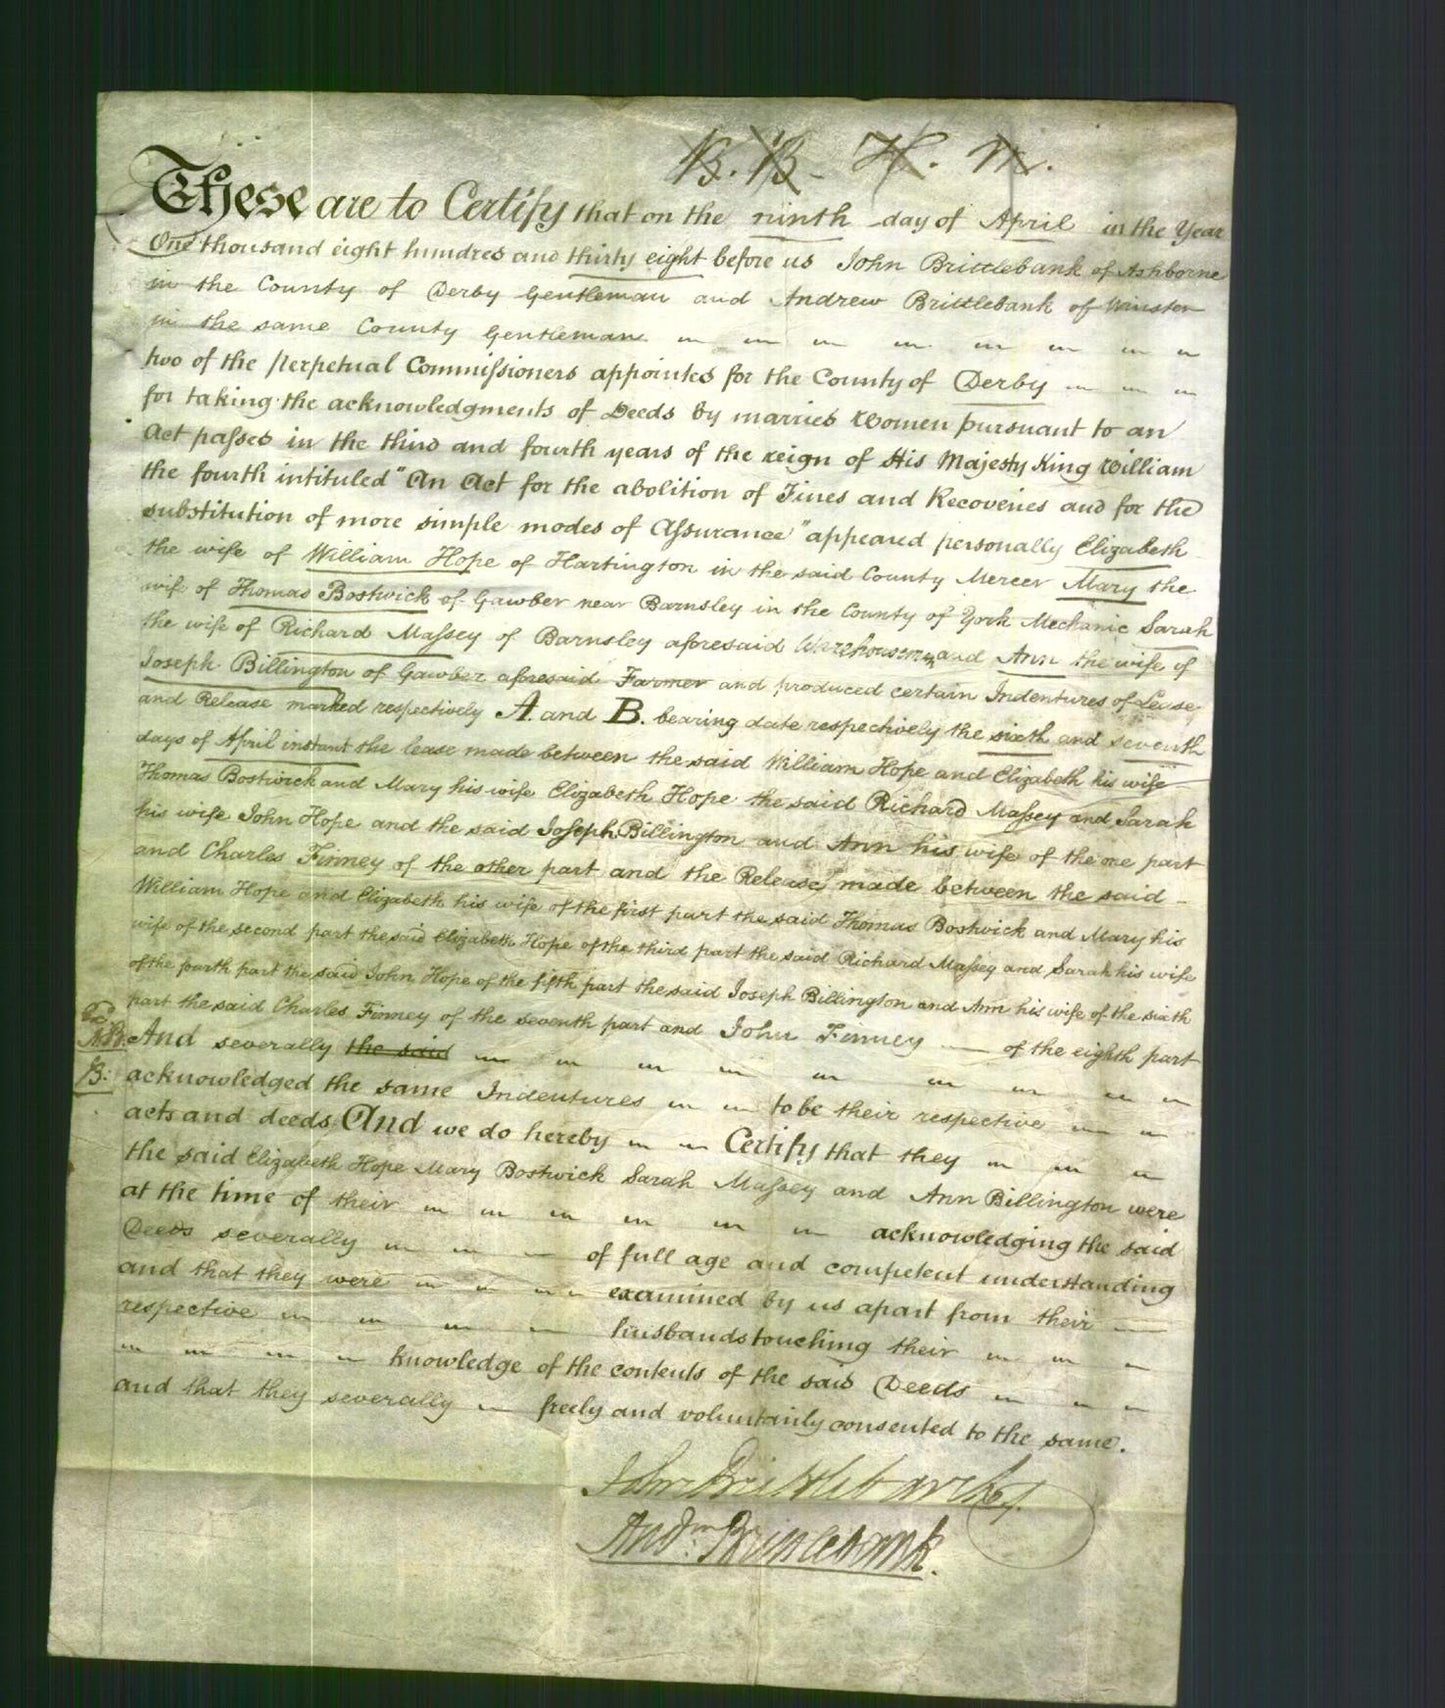 B. B. H. M.
These are to Certify that on the ninth day of April in the Year
One thousand eight hundred and thirty eight before us John Brittlebank of Ashborne
in the County of Derby Gentleman and Andrew Brittlebank of Winster
in the same County Gentleman
two of the perpetual Commissioners appointed for the County of Derby
for taking the acknowledgments of Deeds by married Women pursuant to an
Act passed in the third and fourth years of the reign of His Majesty King William
the fourth intituled "An Act for the abolition of Fines and Recoveries and for the
substitution of more simple modes of Assurance" appeared personally Elizabeth
the wife of William Hope of Hartington in the said County Mercer Mary the
wife of Thomas Bostwick of Gawber near Barnsley in the County of York Mechanic Sarah
the wife of Richard Massey of Barnsley aforesaid Warehouseman and Ann the wife of
Joseph Billington of Gawber aforesaid Farmer and produced certain Indentures of Lease
and Release marked respectively A. and B. bearing date respectively the sixth and seventh
days of April instant the lease made between the said William Hope and Elizabeth his wife
Thomas Bostwick and Mary his wife Elizabeth Hope the said Richard Massey and Sarah
his wife John Hope and the said Joseph Billington and Ann his wife of the one part
and Charles Finney of the other part and the Release made between the said
William Hope and Elizabeth his wife of the first part the said Thomas Bostwick and Mary his
wife of the second part the said Elizabeth Hope of the third part the said Richard Massey and Sarah his wife
of the fourth part the said John Hope of the fifth part the said Joseph Billington and Ann his wife of the sixth
part the said Charles Finney of the seventh part and John Finney of the eighth part
And severally the said
B.
acknowledged the same Indentures to be their respective
acts and deeds And we do hereby Certify that they
the said Elizabeth Hope Mary Bostwick Sarah Massey and Ann Billington were
at the time of their acknowledging the said
Deeds severally of full age and competent understanding
and that they were examined by us apart from their
respective husbands touching their
knowledge of the contents of the said Deeds
and that they severally freely and voluntarily consented to the same.
John Brittlebank
Andw. Brittlebank.